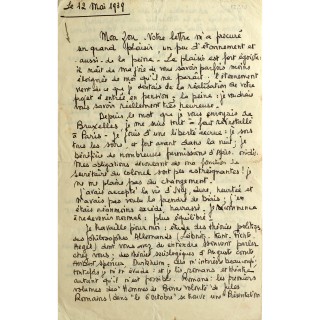 Le 12 Mai 1939
Mon Zou. Votre lettre m'a procuré
un grand plaisir, un peu d'étonnement et
aussi de la peine. Le plaisir est fort égoïste :
il naît de ma joie de vous savoir parfois moins
éloignée de moi qu'il ne paraît. L'étonnement
vient de ce que je doutais de la réalisation de votre
projet d'entrée en . La peine : je voudrais
vous savoir réellement très heureuse.
Depuis le mot que je vous envoyais de
Bruxelles, je me suis tout à fait réinstallé
à Paris. Je jouis d'une liberté accrue : je sors
tous les soirs, et fort avant dans la nuit ; je
bénéficie de nombreuses permissions d'après-midi.
Mes obligations découlant de ma fonction de
secrétaire du colonel sont peu astreignantes ; je
ne me plains pas du changement.
J'avais accepté la vie d'Ivry, dure, hachée et
n'avais pas voulu la peindre de . J'en
étais néanmoins excédé, harassé. Je recommence
à redevenir normal : plus équilibré.
Je travaille pour moi : étude des théories politiques
des philosophes allemands (Leibniz, Kant, Fichte,
Hegel) dont vous avez dû entendre souvent parler
chez vous ; des théories sociologiques d'Auguste Comte
Spencer Durkheim. Cela m'intéresse beaucoup
et je m'évade. Et je lis romans et théâtre
autant qu'il m'est possible. Romans : les premiers
volumes des "Hommes de Bonne volonté" de Jules
Romains (dans "le 6 octobre" se trouve une Présentation